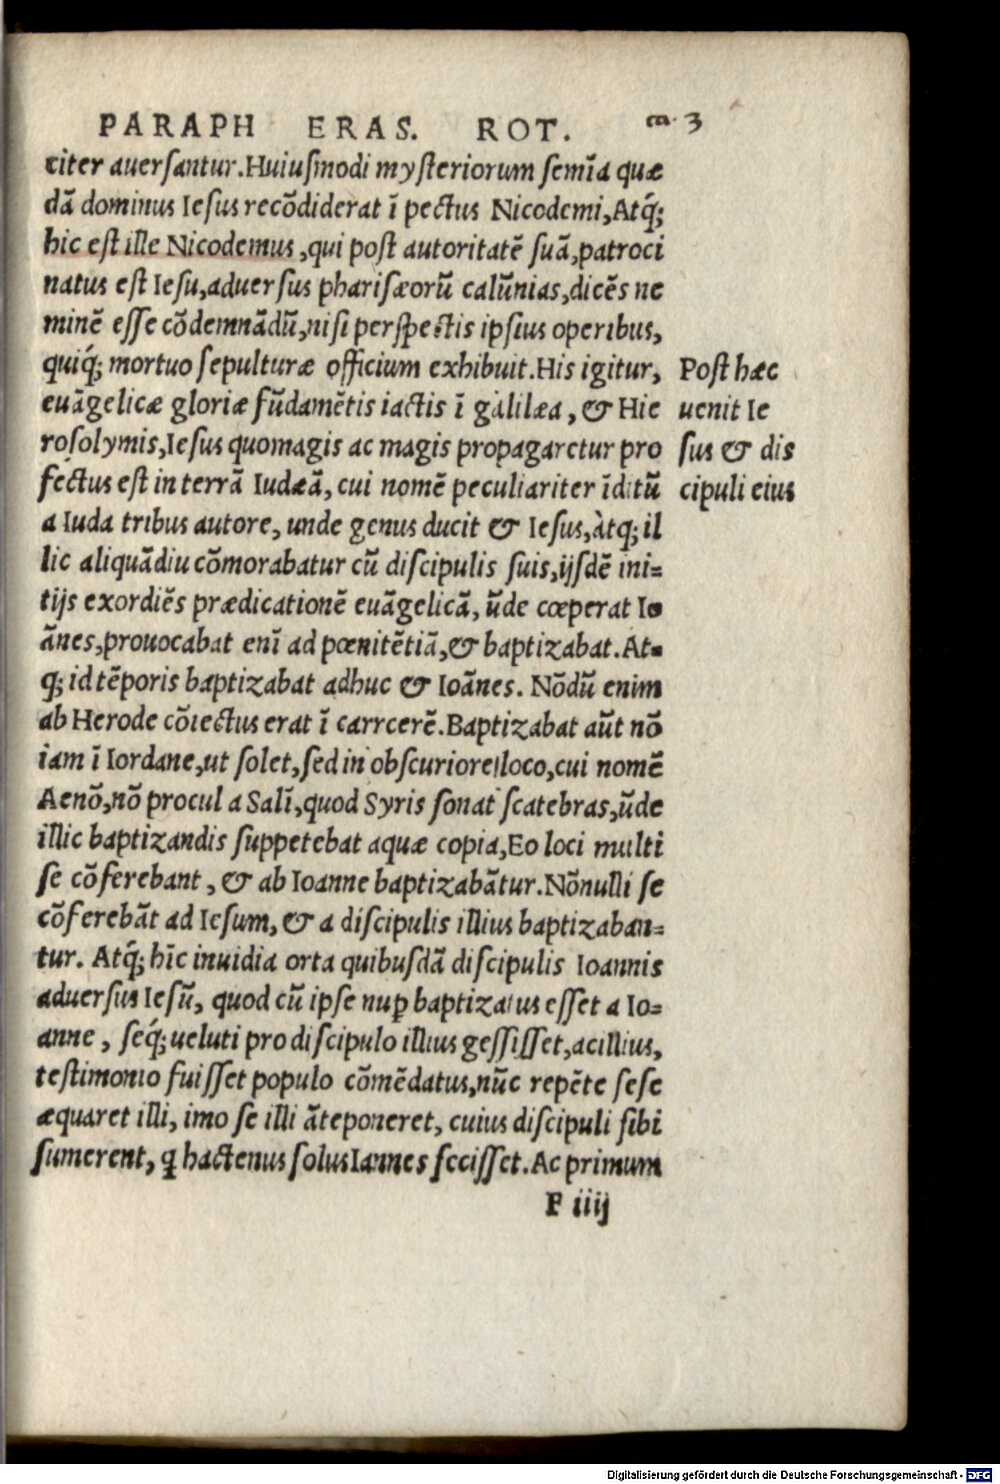 PARAPH ERAS. ROT. 3
citer auersantur. Huiusmodi mysteriorum semīa quæ
dā dominus Iesus recōdiderat ī pectus Nicodemi, Atq́;
hic est ille Nicodemus, qui post autoritatē suā, patroci
natus est Iesu, aduersus pharisæorū calūnias, dicēs ne
minē esse cōdemnādū, nisi perspectis ipsius operibus,
quiq́; mortuo sepulturæ officium exhibuit. His igitur,
euāgelicæ gloriæ fūdamētis iactis ī galilæa, & Hie
rosolymis, Iesus quomagis ac magis propagaretur pro
fectus est in terrā Iudæā, cui nomē peculiariter īditū
a Iuda tribus autore, unde genus ducit & Iesus, àtq; il
lic aliquādiu cōmorabatur cū discipulis suis, ijsdē ini=
tijs exordiēs prædicationē euāgelicā, ūde cœperat Io
ānes, prouocabat enī ad pœnitētiā, & baptizabat. At=
q; id tēporis baptizabat adhuc & Ioānes. Nōdū enim
ab Herode cōiectus erat ī carrcerē. Baptizabat aūt nō
iam ī Iordane, ut solet, sed in obscuriore loco, cui nomē
Aenō, nō procul a Salī, quod Syris sonat scatebras, ūde
illic baptizandis suppetebat aquæ copia, Eo loci multi
se cōferebant, & ab Ioanne baptizabātur. Nōnulli se
cōferebāt ad Iesum, & a discipulis illius baptizaban=
tur. Atq́; hīc inuidia orta quibusdā discipulis Ioannis
aduersus Iesū, quod cū ipse nuꝑ baptizatus esset a Io=
anne, seq́; ueluti pro discipulo illius gessisset, ac illius,
testimonio fuisset populo cōmēdatus, nūc repēte sese
æquaret illi, imo se illi āteponeret, cuius discipuli sibi
sumerent, q hactenus solus Iannes fecisset. Ac primum
F iiij
Post hæc
uenit Ie
sus & dis
cipuli eius
Digitalisierung gefördert durch die Deutsche Forschungsgemeinschaft - DFG